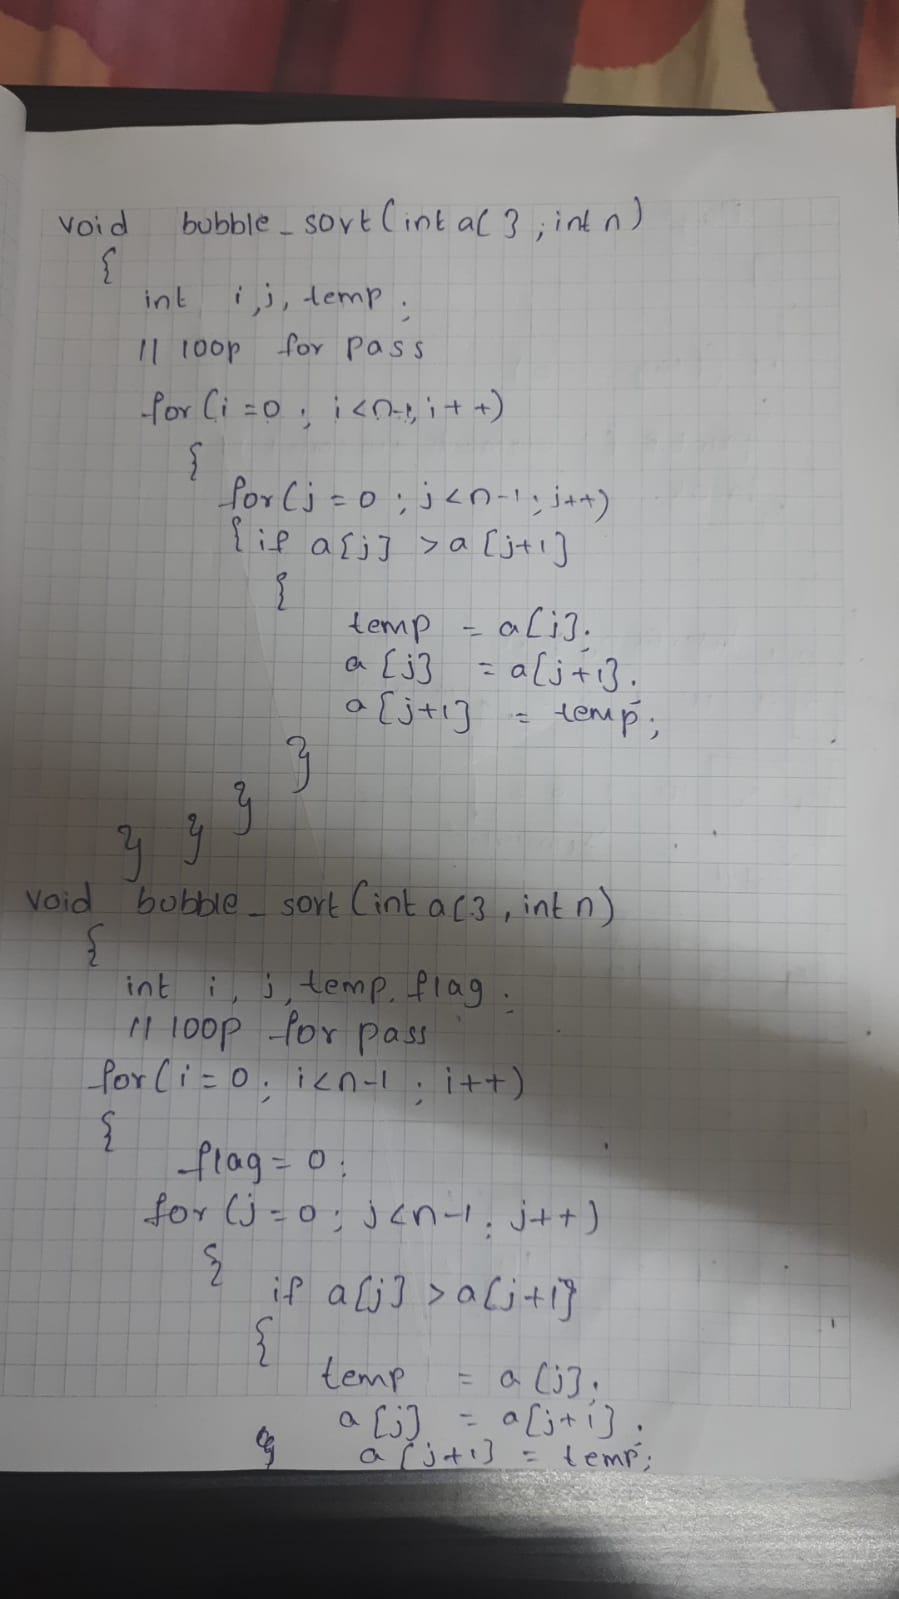 void bubble_sort(int a[ ] ; int n)
{
int i, j, temp ;
// loop for pass
for(i=0 ; i<n-1; i++)
{
for(j=0 ; j<n-1 ; j++)
{ if a[j] > a[j+1]
{
temp = a[j];
a[j] = a[j+1];
a[j+1] = temp;
}
}
}
}
void bubble_sort(int a[ ], int n)
{
int i, j, temp, flag ;
// loop for pass
for(i=0 ; i<n-1 ; i++)
{
flag=0 ;
for(j=0 ; j<n-1 ; j++)
{
if a[j] > a[j+1]
{
temp = a[j];
a[j] = a[j+1];
a[j+1] = temp;